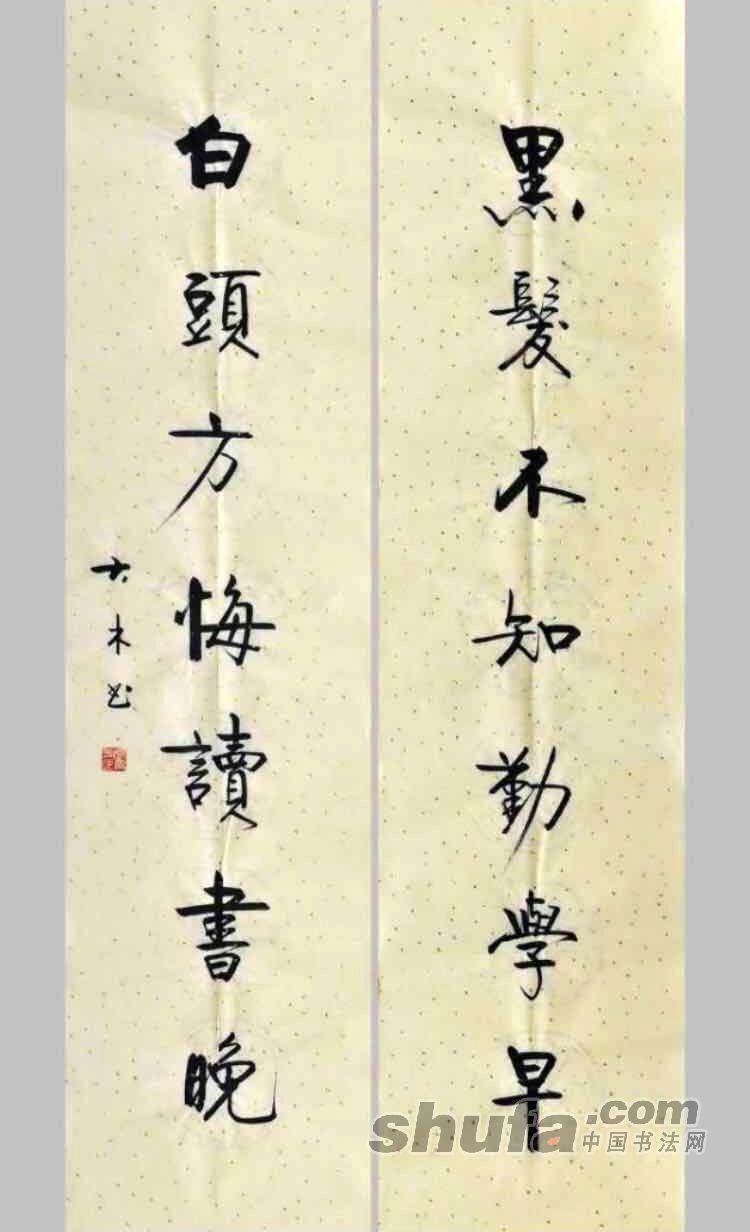 黑髮不知勤學早
白頭方悔讀書晚
大木书
shufa.com
中国书法网